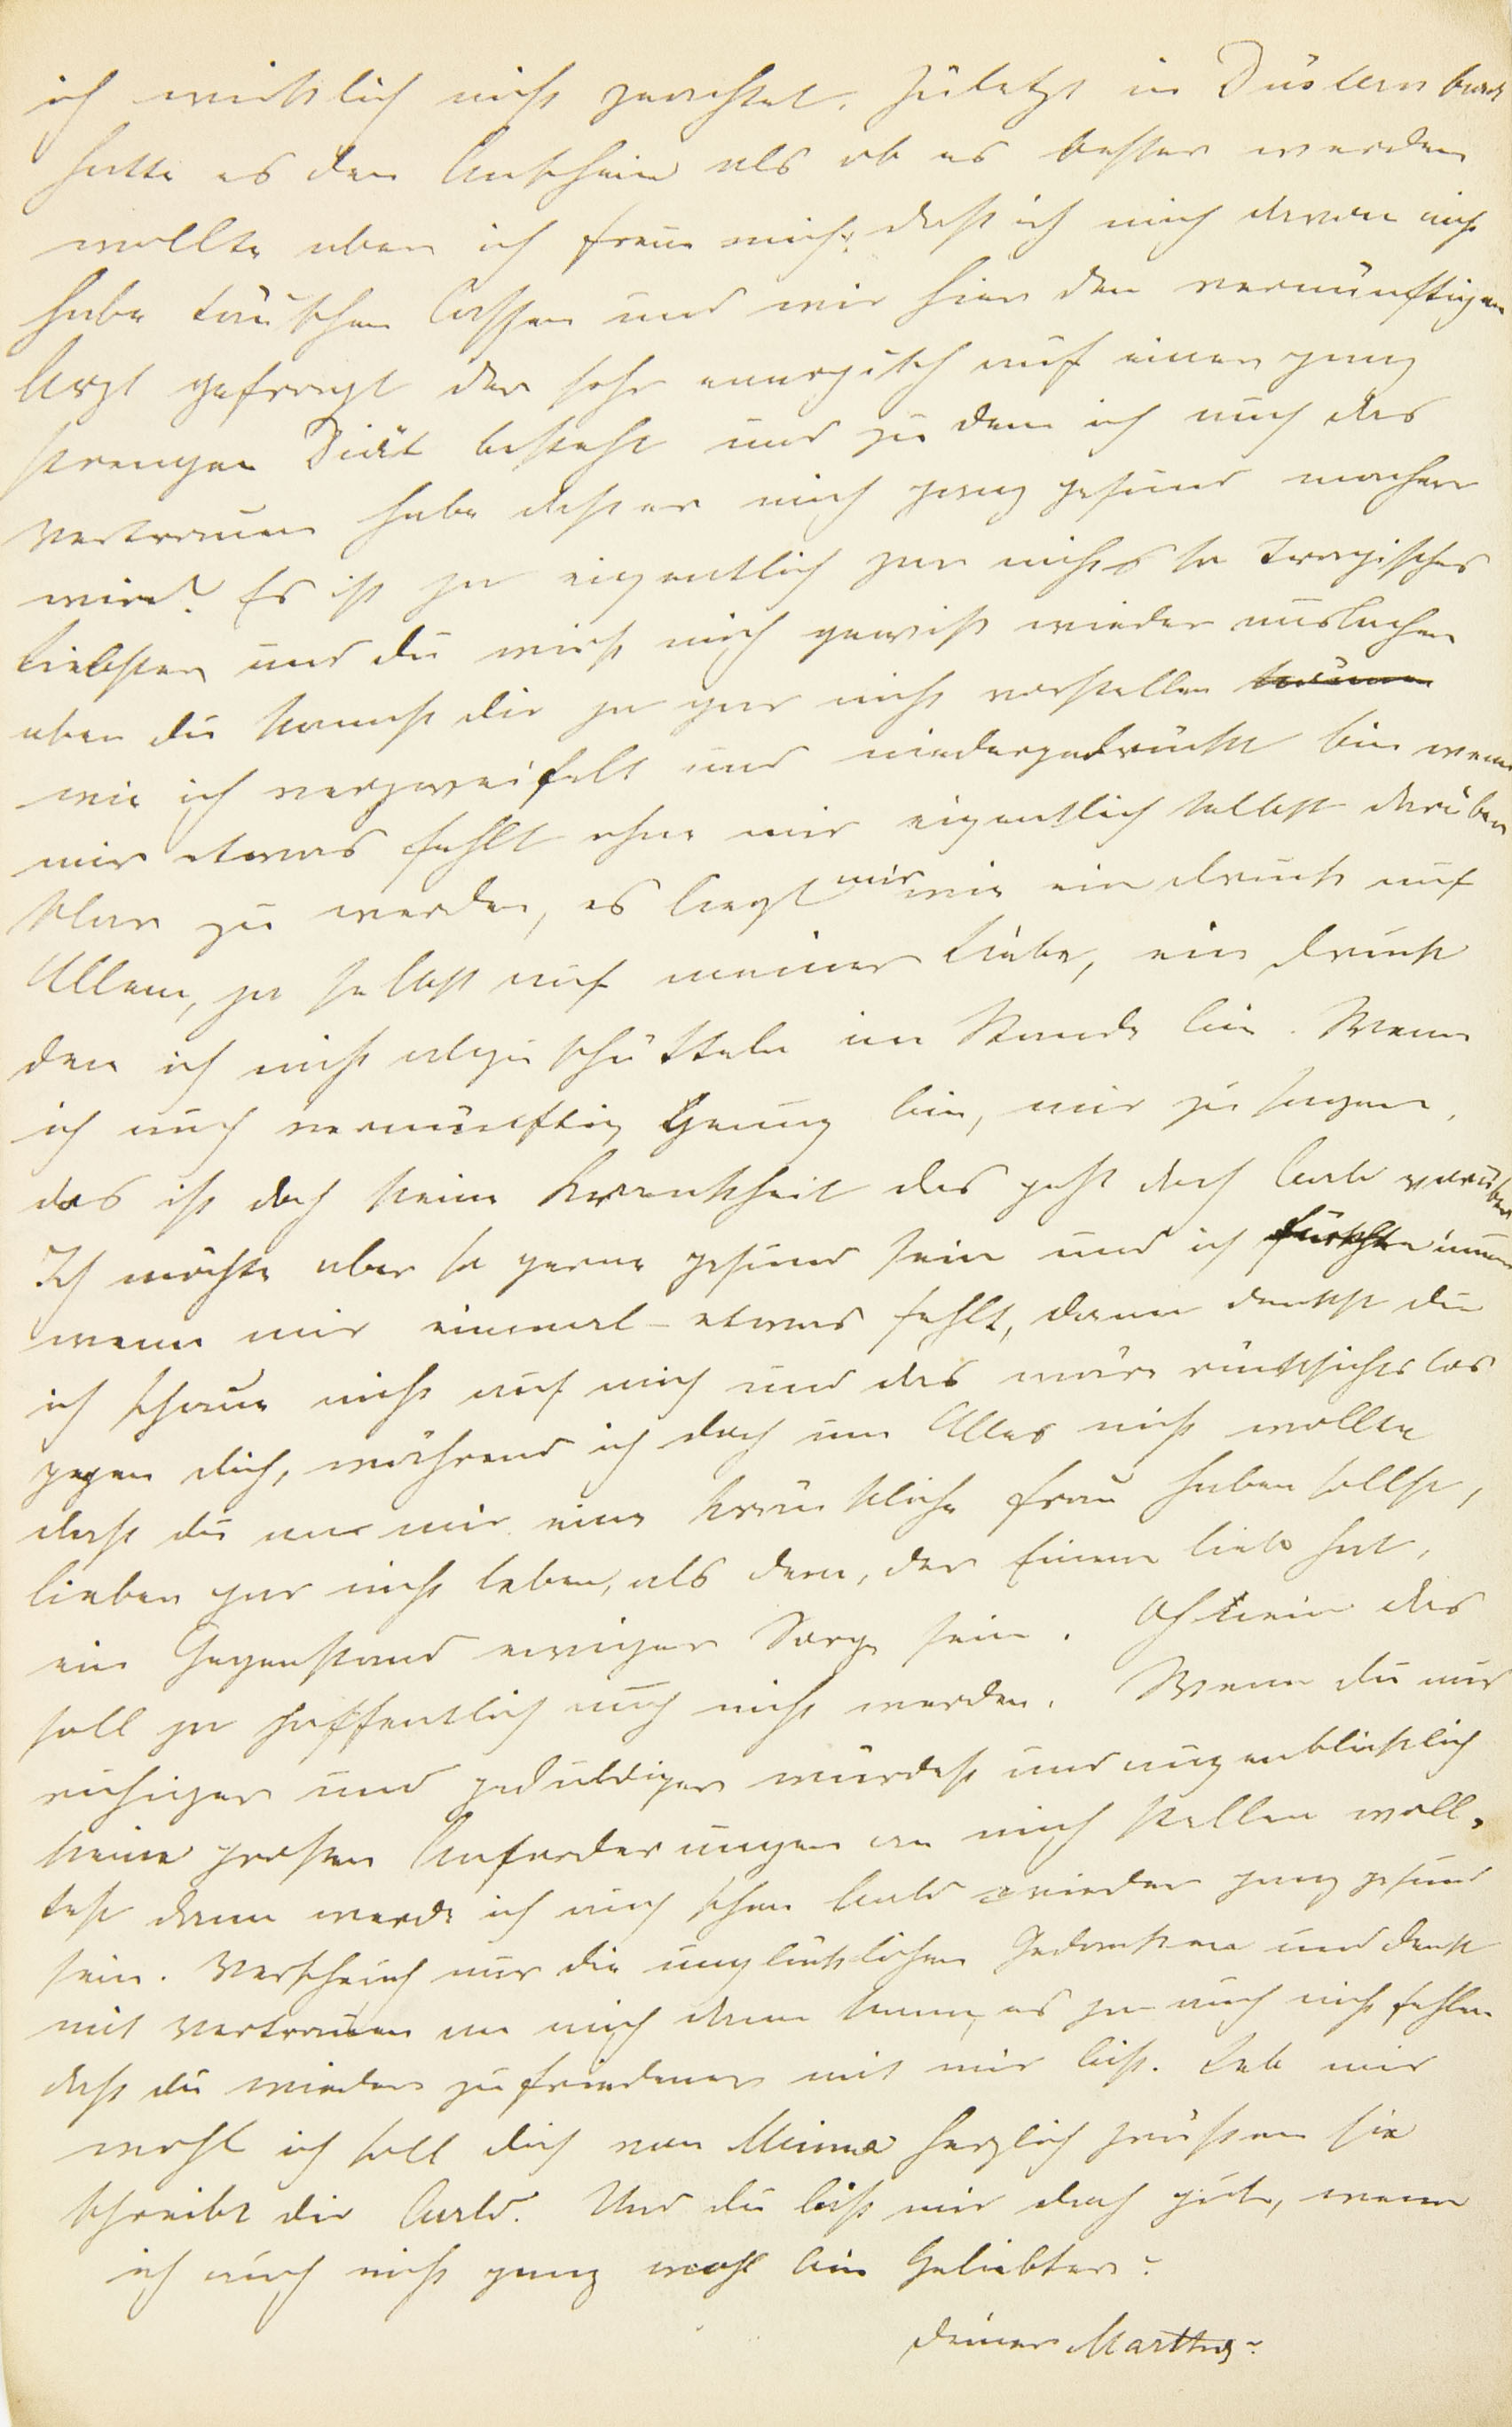 ich wirklich nicht geachtet. Zuletzt in Düsternbrook
hatte es den Anschein als ob es besser werden
wollte aber ich freue mich, daß ich mich davon nicht
habe täuschen lassen und wir hier den vernünftigen
Arzt gefragt der sehr energisch auf einer ganz
strengen Diät besteht und zu dem ich auch das
Vertrauen habe daß er mich ganz gesund machen
wird. Es ist ja eigentlich gar nichts so Tragisches
Liebster und du wirst mich gewiß wieder auslachen
aber du kannst dir ja gar nicht vorstellen
wie ich verzweifelt und niedergedrückt bin wenn
mir etwas fehlt ohne mir eigentlich selbst darüber
klar zu werden, es liegt mir wie ein Druck auf
Allem, ja selbst auf meiner Liebe, ein Druck
den ich nicht abzuschütteln im Stande bin. Wenn
ich auch vernünftig genug bin, mir zu sagen,
das ist doch keine Krankheit das geht doch bald vorüber
Ich möchte aber so gerne gesund sein und ich fürchte immer
wenn mir einmal etwas fehlt, dann denkst du
ich schaue nicht auf mich und das wäre rücksichtslos
gegen dich, während ich doch um Alles nicht wollte
daß du an mir eine kränkliche Frau haben sollst,
lieber gar nicht leben, als dem, der Einem lieb hat,
ein Gegenstand ewiger Sorge sein. Oh nein das
soll ja hoffentlich auch nicht werden. Wenn du nur
ruhiger und geduldiger würdest und augenblicklich
keine großen Anforderungen an mich stellen woll-
test dann werde ich auch schon bald wieder ganz gesund
sein. Verscheuch nur die unglücklichen Gedanken und denk
mit Vertrauen an mich dann kann es ja auch nicht fehlen
daß du wieder zufriedener mit mir bist. Leb mir
wohl ich soll dich von Minna herzlich grüßen sie
schreibt dir bald. Und du bist mir doch gut, wenn
ich auch nicht ganz wohl bin Geliebter?
deiner Martha.